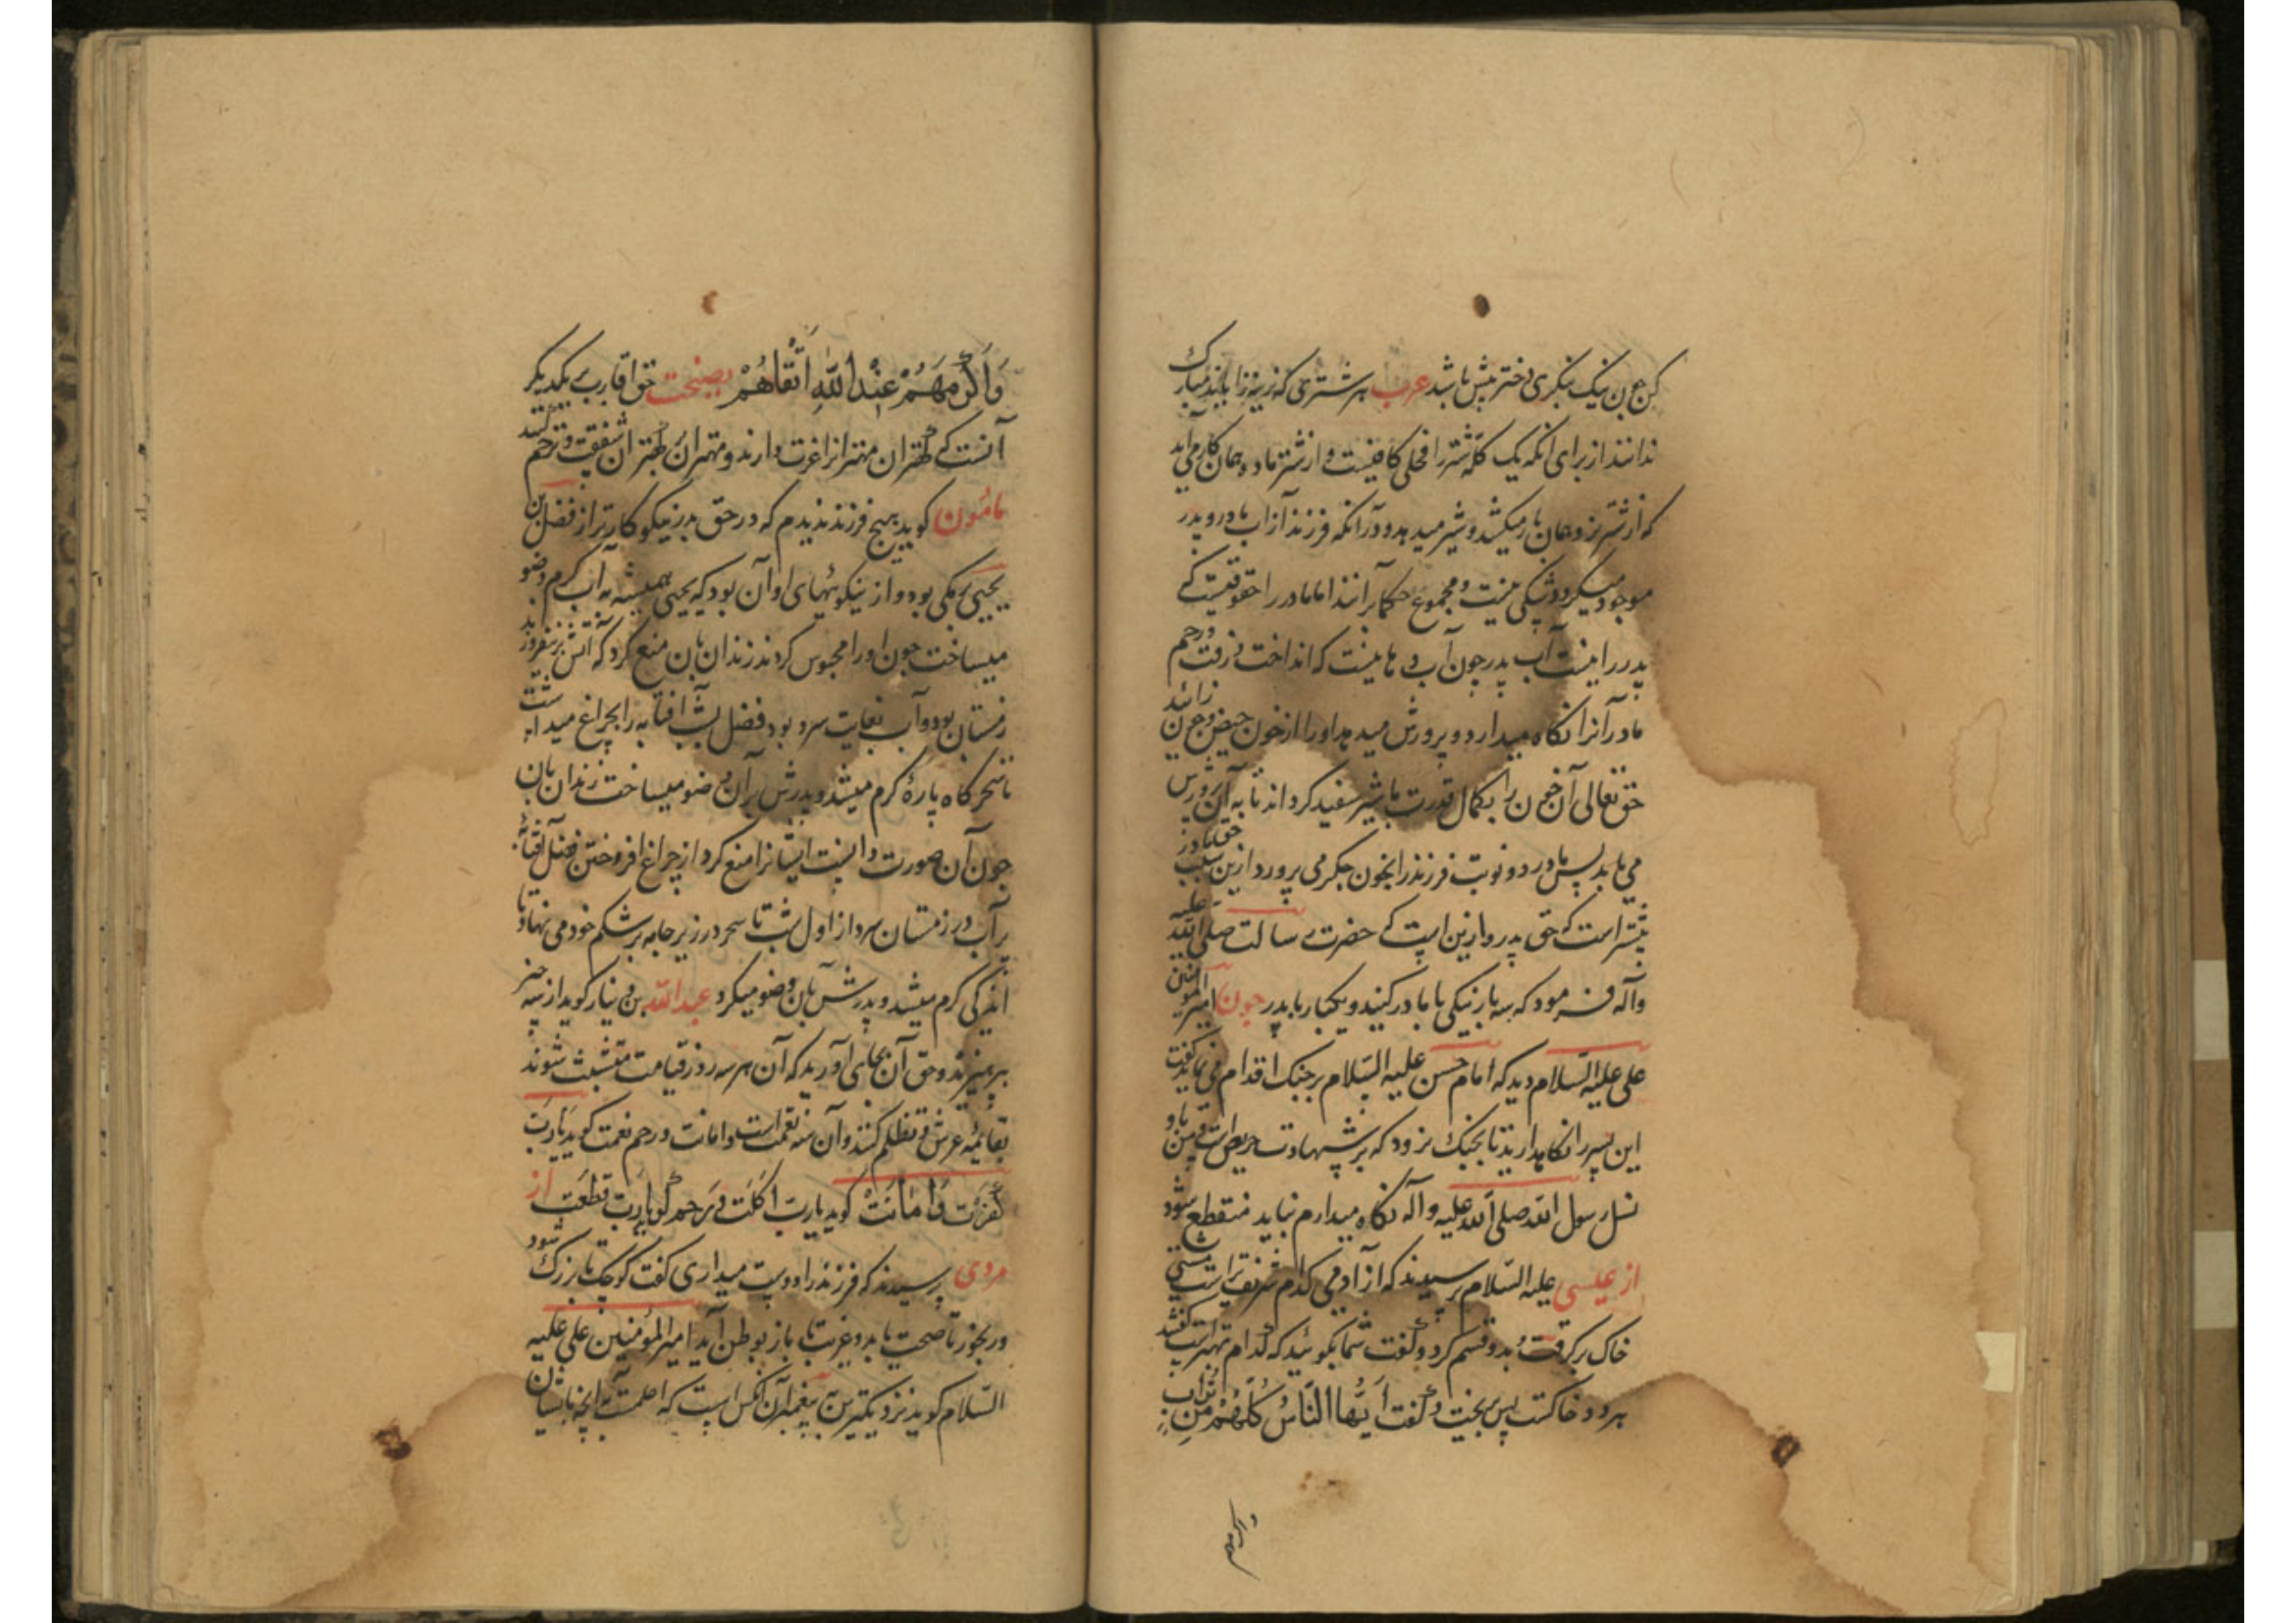 کن چون نیک بنگری دختر بیش باشد عرب هر شتری که نرینه زاید مبارک
ندانند از برای آنکه یک کله شتر را فحلی کافیست و از شتر ماده همان کار می آید
که از شتر نر و همان بار میکشد و شیر میدهد و در آنکه فرزند از آب مادر و پدر
موجود میگردد شکی نیست و مجموع حکما برآنند اما مادر را حقوقیست که
پدر را نیست آب پدر چون آب دهانیست که انداخت و رفت و رحم
مادر آنرا نگاه میدارد و پرورش میدهد او را از خون حیض و چون زائد
حق تعالی آن خون را بکمال قدرت با شیر سفید گرداند تا به آن پرورش
می یابد پس مادر دو نوبت فرزند را بخون جگر می پرورد ازین سبب حق مادر
بیشتر است که حق پدر و ازین است که حضرت رسالت صلی الله علیه
وآله فرمود که سه بار نیکی با مادر کنید و یکبار با پدر چون امیر المؤمنین
علی علیه السلام دید که امام حسن علیه السلام بر جنک اقدام می نماید گفت
این پسر را نگاه دارید تا بجنک نرود که بر شهادت حریص است و من باو
نسل رسول الله صلی الله علیه وآله نگاه میدارم نباید منقطع شود
از عیسی علیه السلام پرسیدند که از آدمی کدام شریفتر است مشتی
خاک برگرفت و بدو قسم کرد و گفت شما بگوئید که کدام بهتر است گفتند
هر دو خاکست پس بریخت و گفت ایها الناس کلهم من تراب
واکرمهم
وَاَکْرَمَهُمْ عِنْدَ اللهِ اَتْقَاهُمْ نصیحت حق اقارب بیکدیگر
آنست که کهتران مهترانرا عزت دارند و مهتران کهتران شفقت و ترحم کنند
مأمون کوید هیچ فرزند ندیدم که در حق پدر نیکو کارتر از فضل بن
یحیی برمکی بود و از نیکوئیهای او آن بود که یحیی همیشه به آب گرم وضو
میساخت چون او را محبوس کردند زندان بان منع کرد که آتش بر نیفروزند
زمستان بود و آب بغایت سرد بود فضل بشب آفتابه را بچراغ میداشت
تا سحرگاه پارۀ گرم میشد و پدرش بر آن وضو میساخت زندان بان
چون آن صورت دانست ایشانرا منع کرد از چراغ افروختن فضل آفتابۀ
پرآب در زمستان سرد از اول شب تا سحر در زیر جامه بر شکم خود می نهاد تا
اندکی گرم میشد و پدرش بآن وضو میکرد عبدالله بن دینار گوید از سه چیز
بپرهیزید و حق آن بجای آورید که آن هر سه روز قیامت متشبث شوند
بقائمۀ عرش و تظلم کنند و آن سه نعمت است و امانت و رحم نعمت گوید یارب
کفرت وَامانت گوید یارب اکلت و رحم گوید یارب قطعت از
مردی پرسیدند که فرزند را دوست میداری گفت کوچک تا بزرک شود
و رنجور تا صحت یابد و غریب تا باز بوطن آید امیرالمؤمنین علی علیه
السلام گوید نزدیکترین پیغمبران آنکس است که اعلمست به آنچه بایشان